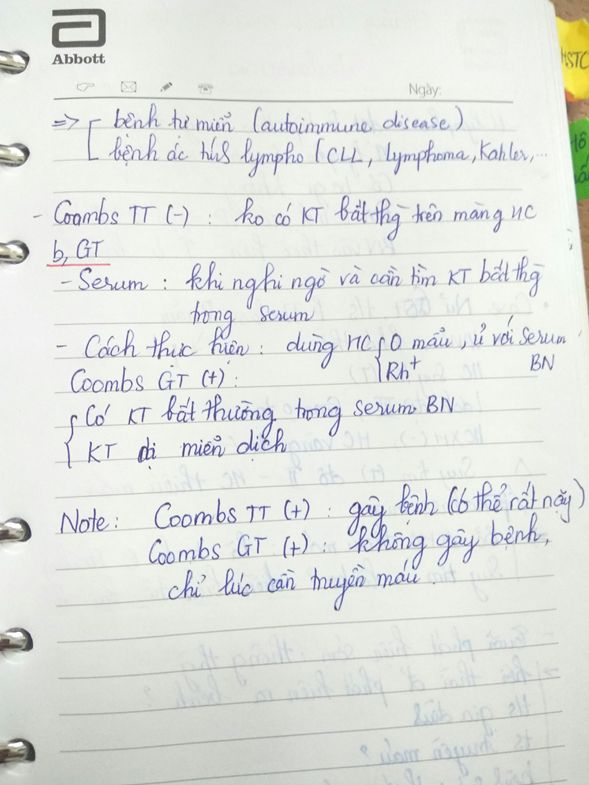 Abbott
Ngày:
=> bệnh tự miễn (autoimmune disease)
bệnh ác tính lympho (CLL, Lymphoma, Kahler,...
- Coombs TT (-) : ko có KT bất thg trên màng HC
b, GT
- Serum : khi nghi ngờ và cần tìm KT bất thg
trong serum
- Cách thực hiện : dùng HC O mẫu, ủ với serum
Rh+ BN
Coombs GT (+) :
Có KT bất thường trong serum BN
KT dị miễn dịch
Note: Coombs TT (+) : gây bệnh (có thể rất nặg)
Coombs GT (+) : không gây bệnh,
chỉ lúc cần truyền máu.
HSTC